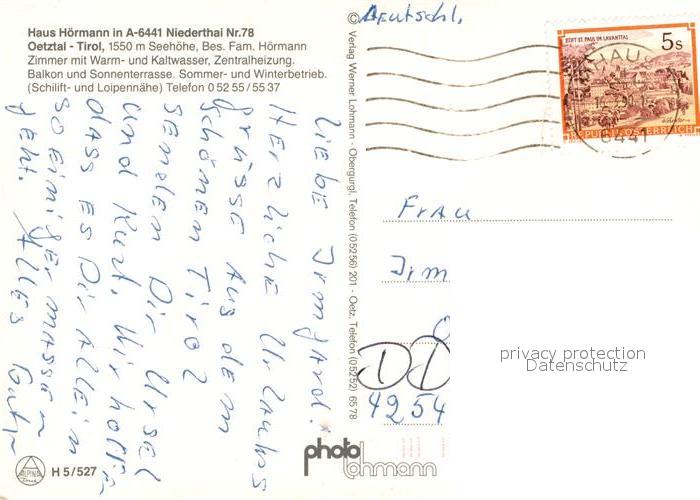 Haus Hörmann in A-6441 Niederthai Nr.78
Oetztal - Tirol, 1550 m Seehöhe, Bes. Fam. Hörmann
Zimmer mit Warm- und Kaltwasser, Zentralheizung.
Balkon und Sonnenterrasse. Sommer- und Winterbetrieb.
(Schilift- und Loipennähe) Telefon 0 52 55 / 55 37
Liebe Irmgard!
Herzliche Urlaubs
grüsse aus dem
schönen Tirol
senden Dir Ursel
und Kurt. Wir hoffen
dass es Dir Allein
so einigermassen
geht. Alles Gute
ALPINA
Druck
H 5/527
© Verlag Werner Lohmann · Obergurgl, Telefon (05256) 201 - Oetz, Telefon (05252) 6578
Deutschl.
STIFT ST. PAUL IM LAVANTTAL
5s
REPUBLIK ÖSTERREICH
6441
Frau
Irm
DD
4254
privacy protection
Datenschutz
photo
lohmann